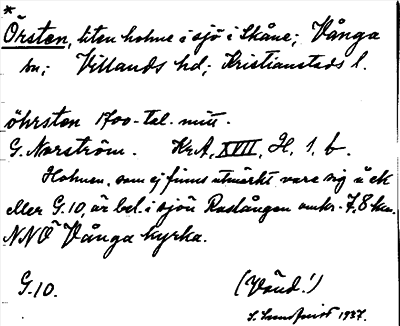 *
Örsten, liten holme i sjö i Skåne; Vånga
sn; Villands hd; Kristianstads l.
öhrsten 1700-tal. mitt.
G. Norström. KrA, XVII, H, 1, b.
Holmen, som ej finns utmärkt vare sig å ek
eller G.10, är bel. i sjön Raslången omkr. 7,8 km.
NNÖ Vånga kyrka.
G.10. (Vänd!)
1937.